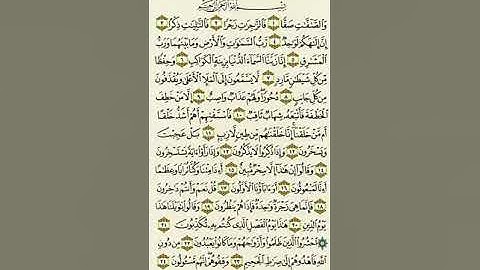 بسم الله الرحمن الرحيم
والصافات صفا ١ فالزاجرات زجرا ٢ فالتاليات ذكرا ٣
إن إلهكم لواحد ٤ رب السماوات والأرض وما بينهما ورب
المشارق ٥ إنا زينا السماء الدنيا بزينة الكواكب ٦ وحفظا
من كل شيطان مارد ٧ لا يسمعون إلى الملإ الأعلى ويقذفون
من كل جانب ٨ دحورا ولهم عذاب واصب ٩ إلا من خطف
الخطفة فأتبعه شهاب ثاقب ١٠ فاستفتهم أهم أشد خلقا
أم من خلقنا إنا خلقناهم من طين لازب ١١ بل عجبت
ويسخرون ١٢ وإذا ذكروا لا يذكرون ١٣ وإذا رأوا آية يستسخرون
١٤ وقالوا إن هذا إلا سحر مبين ١٥ أءذا متنا وكنا ترابا وعظاما
أءنا لمبعوثون ١٦ أوءاباؤنا الأولون ١٧ قل نعم وأنتم داخرون
١٨ فإنما هي زجرة واحدة فإذا هم ينظرون ١٩ وقالوا يا ويلنا هذا
يوم الدين ٢٠ هذا يوم الفصل الذي كنتم به تكذبون ٢١
احشروا الذين ظلموا وأزواجهم وما كانوا يعبدون ٢٢ من دون
الله فاهدوهم إلى صراط الجحيم ٢٣ وقفوهم إنهم مسئولون ٢٤